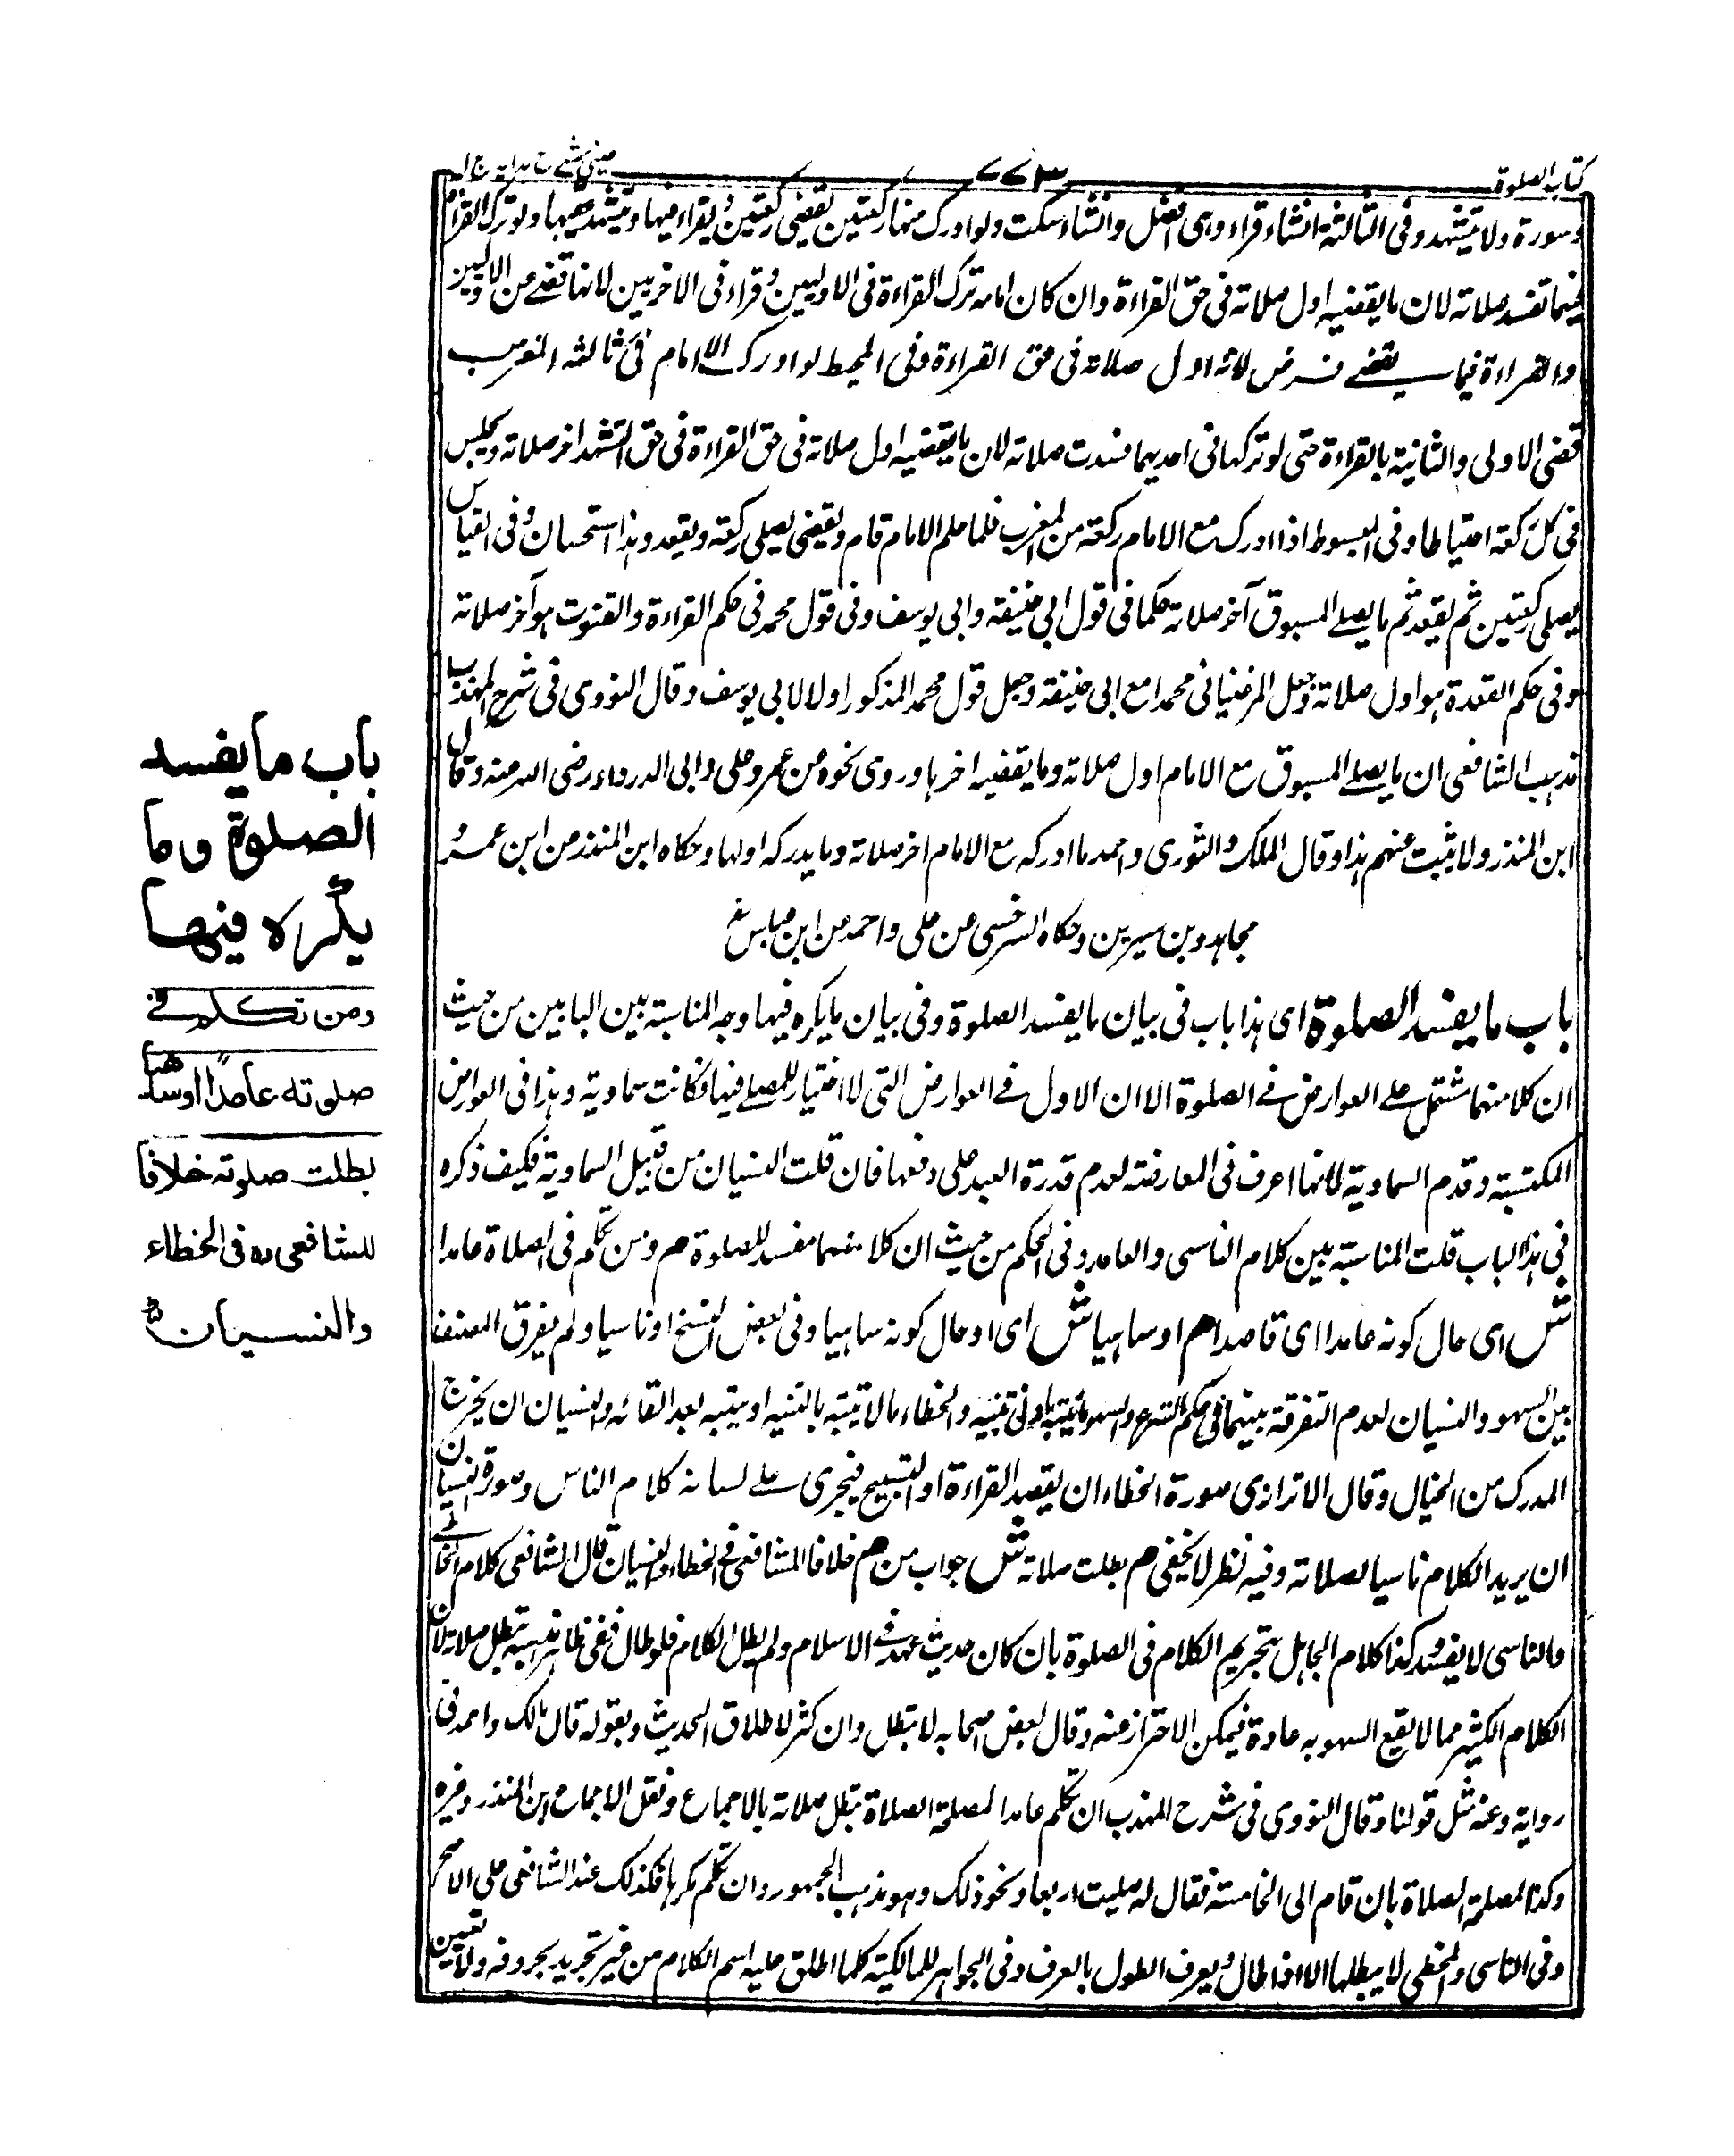 كتاب الصلوة
٧٧٣
عينى شرح هدايه ج ١
وسورة ولا يتشهد وفى الثالثة ان شاء قراء وهى افضل وان شاء سكت ولو ادرك منها ركعتين يقضى ركعتين ويقراء فيهما ويتشهد فيهما ولو ترك القراءة
فيهما تفسد صلاته لان ما يقضيه اول صلاته فى حق القراءة وان كان امامه ترك القراءة فى الاوليين وقراء فى الاخريين لانها تقضى من الاوليين
والقراءة فيما يقضى فرض لانه اول صلاته فى حق القراءة وفى المحيط لو ادرك الامام فى ثالثة المغرب
قضى الاولى والثانية بالقراءة حتى لو تركها فى احديهما فسدت صلاته لان ما يقضيه اول صلاته فى حق القراءة فى حق التشهد اخر صلاته ويجلس
فى كل ركعة احتياطا وفى المبسوط اذا ادرك مع الامام ركعة من المغرب فلما سلم الامام قام ويقضى يصلى ركعة ويقعد وهذا استحسان وفى القياس
يصلى ركعتين ثم يقعد ثم ما يصلے المسبوق آخر صلاته حكما فى قول ابى حنيفة وابى يوسف وفى قول محمد فى حكم القراءة والقنوت هو آخر صلاته
وفى حكم القعدة هو اول صلاته وجعل المرغينانى محمدا مع ابى حنيفة وجعل قول محمد المذكور اولا لابى يوسف وقال النووى فى شرح المهذب
مذهب الشافعى ان ما يصلے المسبوق مع الامام اول صلاته وما يقضيه اخرها وروى نحوه عن عمر وعلى وابى الدرداء رضى الله عنه وقال
ابن المنذر ولا يثبت عنهم هذا وقال المالك والثورى واحمد ما ادركه مع الامام اخر صلاته وما يدركه اولها وحكاه ابن المنذر من ابن عمر و
مجاهد وبن سيرين وحكاه السرخسى عن على واحمد من ابن عباس
باب ما يفسد الصلوة اى هذا باب فى بيان ما يفسد الصلوة وفى بيان ما يكره فيها وجه المناسبة بين البابين من حيث
ان كلا منهما مشتمل على العوارض فى الصلوة الا ان الاول فى العوارض التى لا اختيار للمصلے فيها فكانت سماوية وهذا فى العوارض
المكتسبة وقدم السماوية لانها اعرف فى المعارضة لعدم قدرة العبد على دفعها فان قلت النسيان من قبيل السماوية فكيف ذكره
فى هذا الباب قلت المناسبة بين كلام الناسى والعامد وفى الحكم من حيث ان كلا منهما مفسد للصلوة م ومن تكلم فى الصلاة عامدا
ش اى حال كونه عامدا اى قاصدا م او ساهيا ش اى او حال كونه ساهيا وفى بعض النسخ او ناسيا ولم يفرق المصنف
بين السهو والنسيان لعدم التفرقة بينهما فى حكم الشرع والسهو ما يتنبه بادنى تنبيه والخطاء ما لا يتنبه بالتنبيه او يتنبه بعد اتعابه والنسيان ان يخرج
المدرك من الخيال وقال الاترازى صورة الخطاء ان يقصد القراءة او التسبيح فيجرى على لسانه كلام الناس وصورة النسيان
ان يريد الكلام ناسيا لصلاته وفيه نظر لا يخفى م بطلت صلاته ش جواب من م خلافا للشافعى فى الخطاء والنسيان قال الشافعى كلام الخاطى
والناسى لا يفسد وكذا كلام الجاهل بتحريم الكلام فى الصلوة بان كان حديث عهد فى الاسلام ولم يطل الكلام فلو طال ففى ظاهر مذهبه تبطل صلاته لان
الكلام الكثير مما لا يقع السهو به عادة فيمكن الاحتراز عنه وقال بعض اصحابه لا تبطل وان كثر لاطلاق الحديث وبقوله قال مالك واحمد فى
رواية وعنه مثل قولنا وقال النووى فى شرح المهذب ان تكلم عامدا لمصلحة الصلاة تبطل صلاته بالاجماع ونقل الاجماع ابن المنذر وغيره
وكذا لمصلحة الصلاة بان قام الى الخامسة فقال له صليت اربعا ونحو ذلك وهو مذهب الجمهور وان تكلم مكرها فكذلك عند الشافعى على الاصح
وفى الناسى والمخطى لا يبطلها الا اذا طال ويعرف الطول بالعرف وفى الجواهر للمالكية كلما اطلق عليه اسم الكلام من غير تجريد بحروفه ولا تعيين
باب ما يفسد
الصلوة وما
يكره فيها
ومن تكلم فى
صلوته عامدًا اوساهيا
بطلت صلوته خلافا
للشافعى ره فى الخطاء
والنسيان